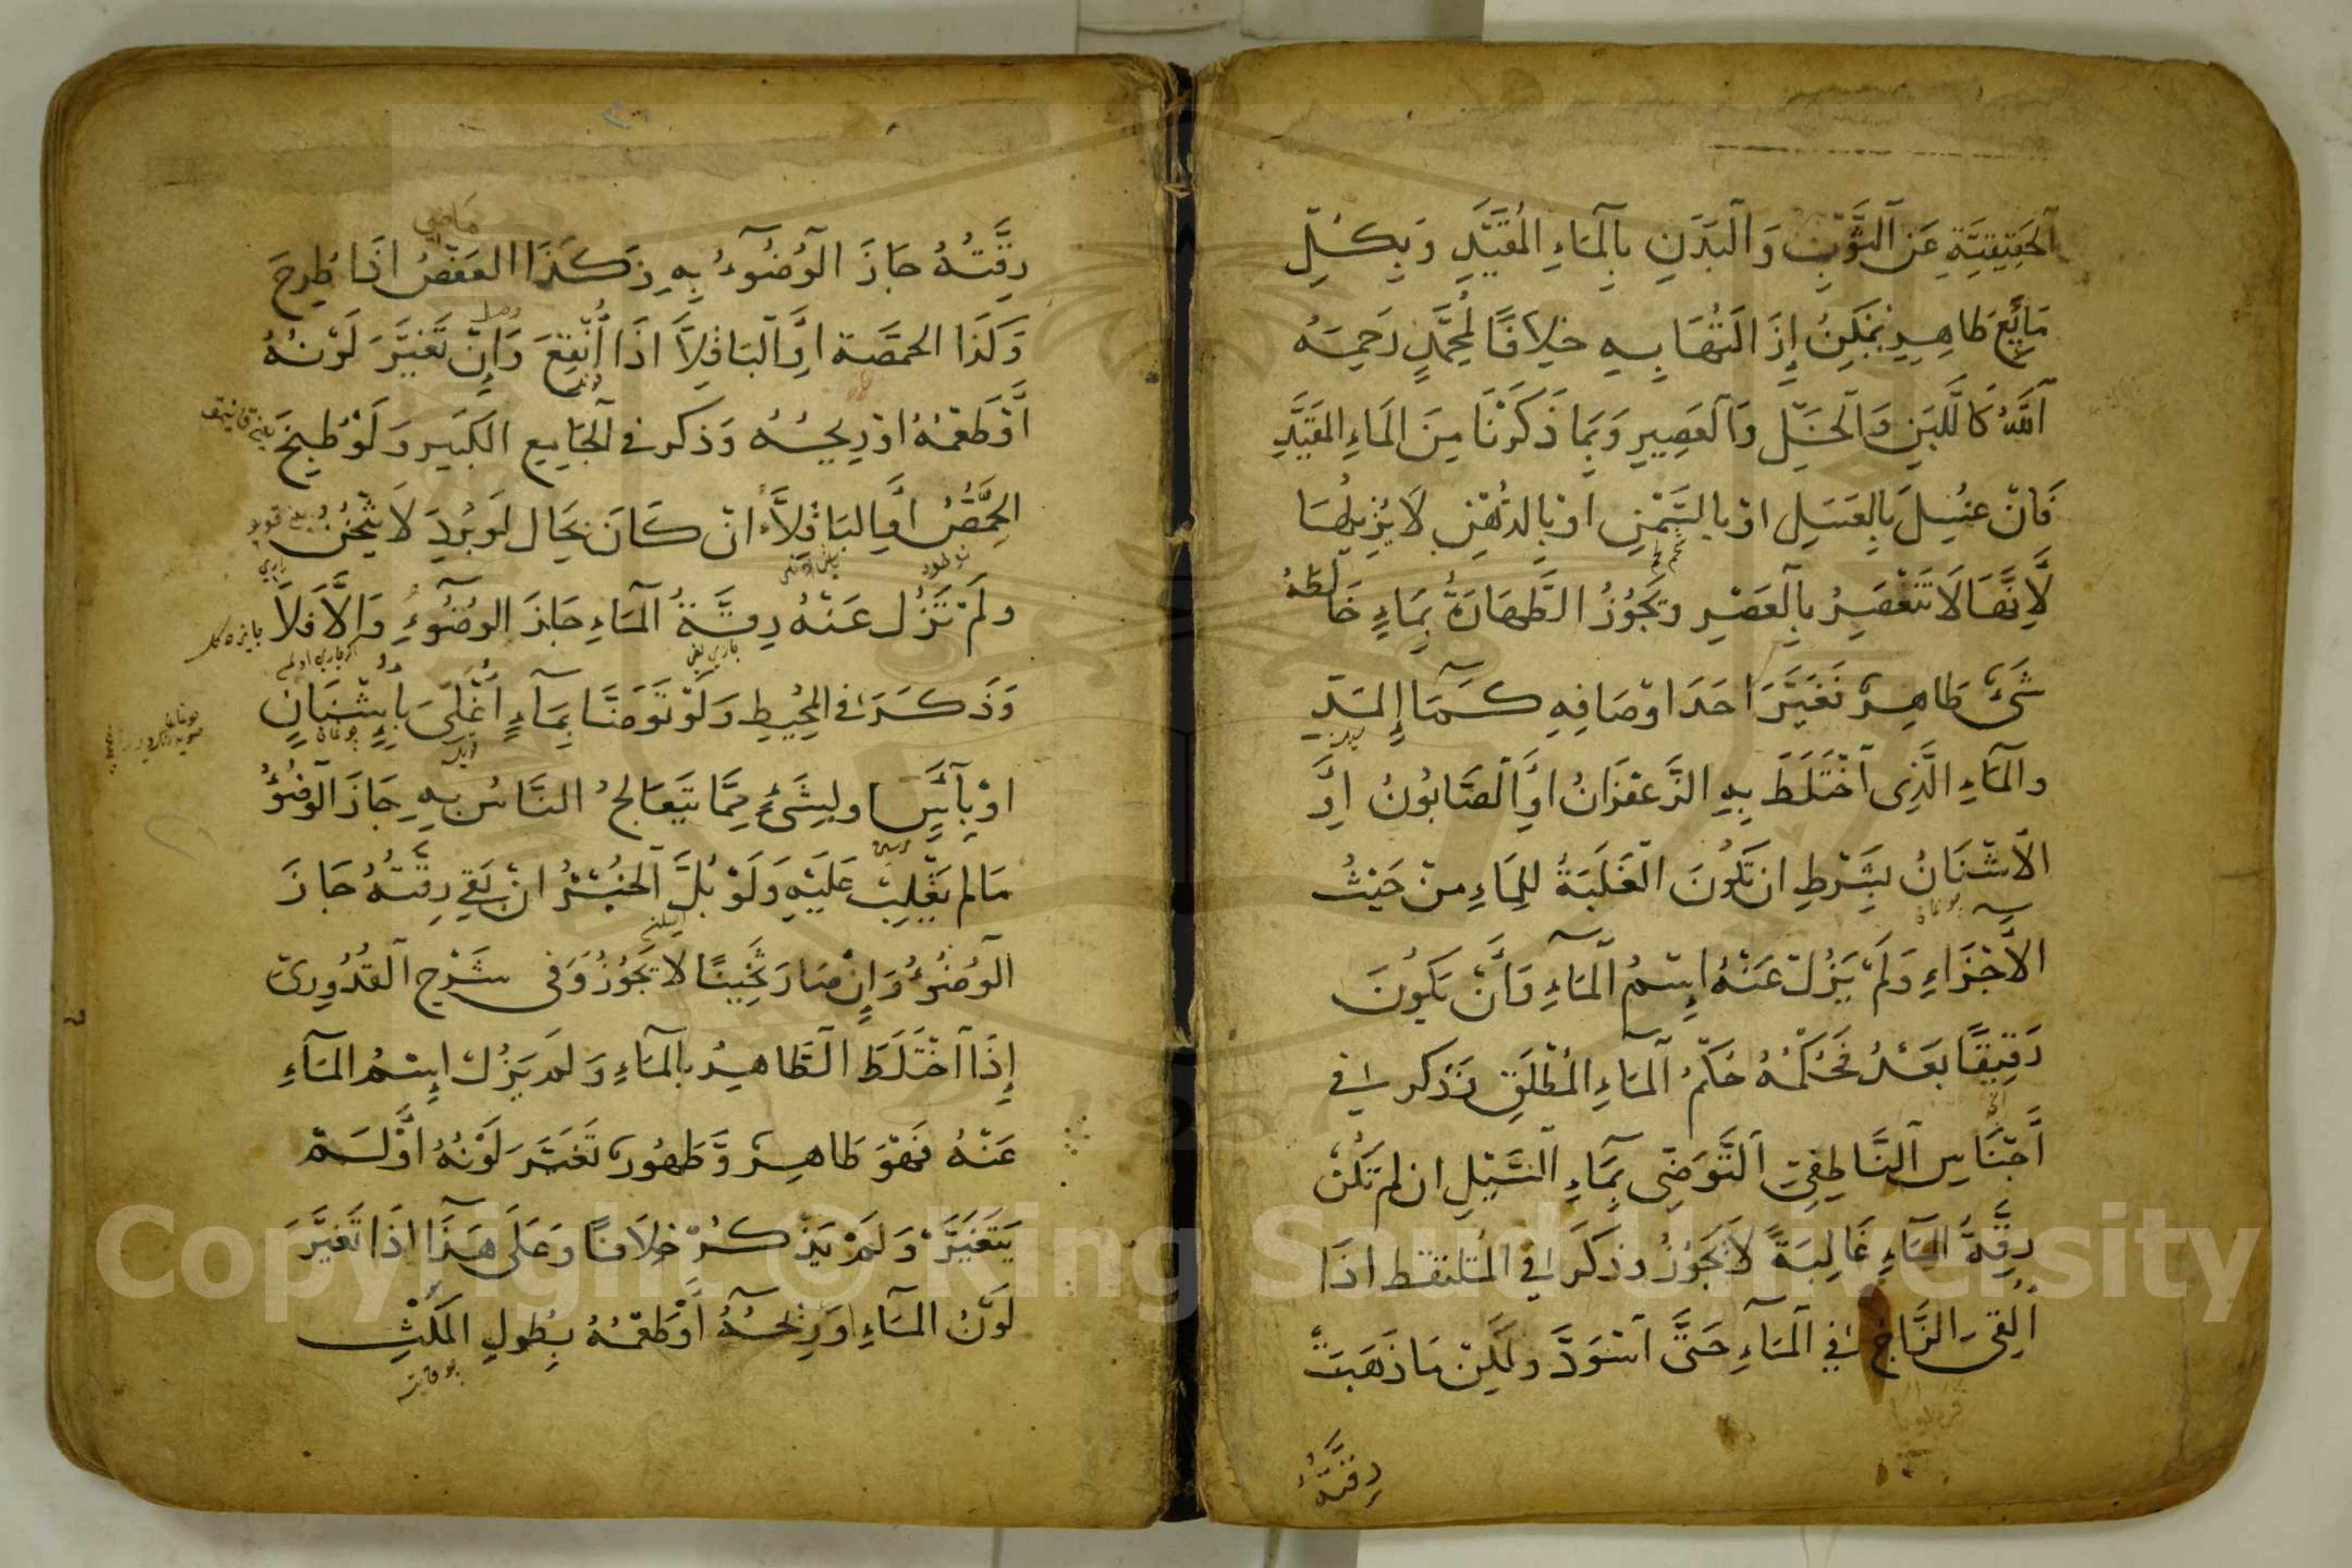 الْحَقِيقِيَّةِ عَنِ الثَّوْبِ وَالْبَدَنِ بِالْمَاءِ الْمُقَيَّدِ وَبِكُلِّ
مَايِعٍ طَاهِرٍ يُمْكِنُ إِزَالَتُهَا بِهِ خِلَافًا لِمُحَمَّدٍ رَحِمَهُ
اللَّهُ كَاللَّبَنِ وَالْخَلِّ وَالْعَصِيرِ وَبِمَا ذَكَرْنَا مِنَ الْمَاءِ الْمُقَيَّدِ
فَانْ غُسِلَ بِالْعَسَلِ اوْ بِالسَّمْنِ اوْ بِالدُّهْنِ لَا يُزِيلُهَا
لِأَنَّهَا لَا تَنْعَصِرُ بِالْعَصْرِ وَيَجُوزُ الطَّهَارَةُ بِمَاءٍ خَالَطَهُ
شَيْءٌ طَاهِرٌ فَغَيَّرَ احَدَ اوْصَافِهِ كَمَاءِ الْمَدِّ
وَالْمَاءِ الَّذِى اخْتَلَطَ بِهِ الزَّعْفَرَانُ اوِ الصَّابُونُ اوِ
الْاُشْنَانُ بِشَرْطِ انْ تَكُونَ الْغَلَبَةُ لِلْمَاءِ مِنْ حَيْثُ
الْأَجْزَاءِ وَلَمْ يَزُلْ عَنْهُ اِسْمُ الْمَاءِ وَأَنْ يَكُونَ
رَقِيقًا بَعْدُ فَحُكْمُهُ حُكْمُ الْمَاءِ الْمُطْلَقِ وَذكر فى
أَجْنَاسِ النَّاطِفِيِّ التَّوَضِّى بِمَاءِ السَّيْلِ ان لم تَكُنْ
رِقَّةُ الْمَاءِ غَالِبَةً لَا يَجُوزُ وَذَكَرَ فى الْمُلْتَقَط اذَا
اُلْقِىَ الزَّاجُ فى الْمَاءِ حَتَّى اسْوَدَّ وَلَكِنْ مَا ذَهَبَتْ
رِقَّتُهُ
رِقَّتُهُ جَازَ الْوُضُوءُ بِهِ وَكَذَا الْعَفْصُ اذَا طُرِحَ
وَكَذَا الحمّصة اوِ الْبَاقِلَّا اذَا اُنْقِعَ وَإِنْ تَغَيَّرَ لَوْنُهُ
أَوْ طَعْمُهُ اوْ رِيحُهُ وَذكر فى الْجَامِعِ الْكَبِيرِ وَلَوْ طُبِخَ
الحِمَّصُ أَوِ الْبَاقِلَّاءُ انْ كَانَ بِحَال لَوْ بُرِدَ لَا يَثْخُنُ
وَلَمْ تَزُلْ عَنْهُ رِقَّةُ الْمَاءِ جَازَ الْوُضُوءُ وَإِلَّا فَلَا
وَذَكَرَ فى الْمُحِيطِ وَلَوْ تَوَضَّا بِمَاءٍ أُغْلِىَ بِأُشْنَانٍ
اوْ بِآسٍ او بِشَىْءٍ مِمَّا يَتَعَالَجُ النَّاسُ بِهِ جَازَ الْوُضُوءُ
مَا لم يَغْلِبْ عَلَيْهِ وَلَوْ بُلَّ الْخُبْزُ انْ بَقِى رِقَّتُهُ جَازَ
الْوُضُوءُ وَإِنْ صَارَ ثَخِينًا لَا يَجُوزُ وَفى شَرْحِ الْقُدُورِىّ
إِذَا اخْتَلَطَ الطَّاهِرُ بِالْمَاءِ وَلَمْ يَزُلْ اِسْمُ الْمَاءِ
عَنْهُ فَهُوَ طَاهِرٌ وَطَهُورٌ تَغَيَّرَ لَوْنُهُ أَوْ لَمْ
يَتَغَيَّرْ وَلَمْ يَذْكُرْ خِلَافًا وَعَلَى هَذَا اذَا تَغَيَّرَ
لَوْنُ الْمَاءِ اوْ رِيحُهُ أَوْ طَعْمُهُ بِطُولِ الْمَكْثِ
Copyright © King Saud University
1957